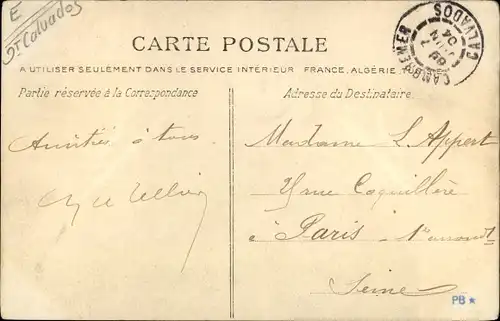 E
Dt Calvados
CARTE POSTALE
A UTILISER SEULEMENT DANS LE SERVICE INTÉRIEUR FRANCE, ALGÉRIE,
Partie réservée à la Correspondance
Adresse du Destinataire.
CAMBREMER
CALVADOS
04
Amitiés à tous
Madame L. Appert
rue Coquillère
à Paris
Seine
PB